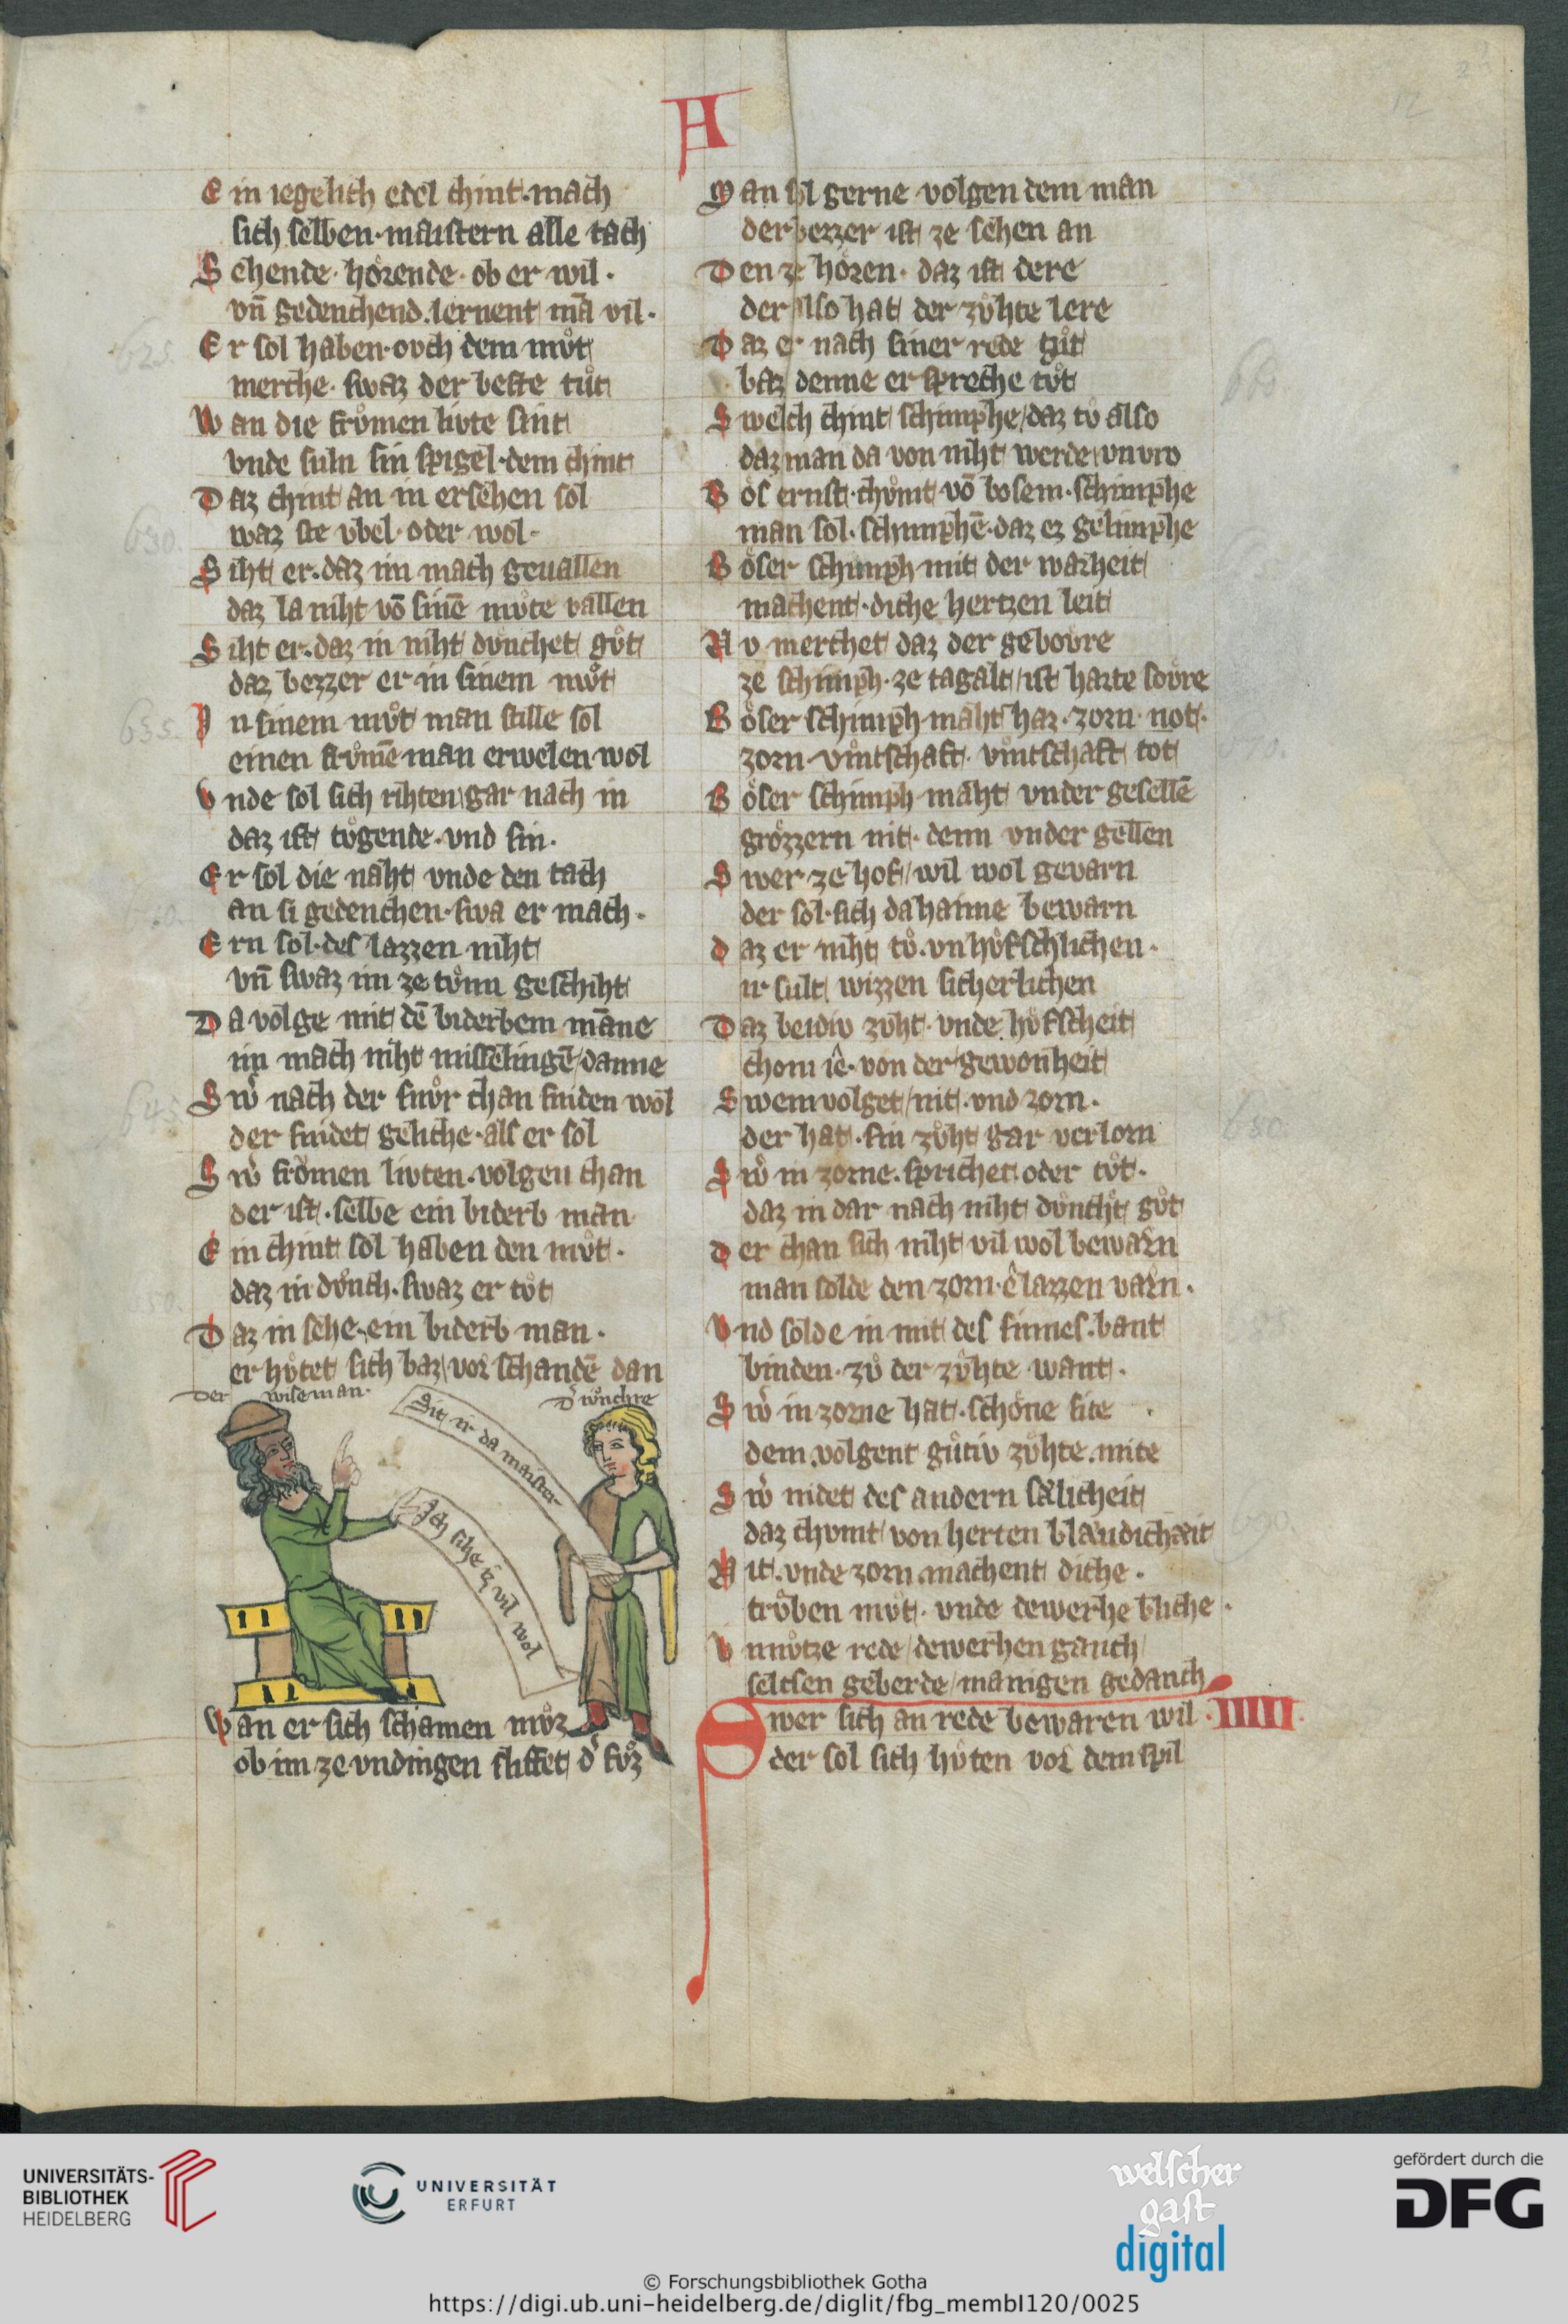 A
E in iegelich edel chint·mach
sich selben·maistern alle tach
S ehende·hoͤrende·ob er wil·
vñ gedenchend·lernent mā vil·
E r sol haben·ovch dem mvͦt
merche·swaz der beste tuͦt
W an die frvͦmen livte sint
vnde suln sin spigel·dem chint
D az chint an in ersehen sol
waz ste vbel·oder wol·
S iht er·daz im mach geuallen
daz la niht vō sinē mvͦte vallen
S iht er·daz in niht dvnchet gvͦt
daz bezzer er in sinem mvͦt
I n sinem mvͦt man stille sol
einen frvͦmē man erwelen wol
v nde sol sich rihten gar nach in
daz ist tvͦgende·vnd sin·
E r sol die naht vnde den tach
an si gedenchen·swa er mach·
E rn sol·des lazzen niht
vñ swaz im ze tvͦnn geschiht
D a volge mit dē biderbem māne
im mach niht misselingē danne
S wͦ nach der snvͦr chan sniden wol
der snidet geliche·als er sol
S wͦ frvͦmen livten·volgen chan
der ist·selbe ein biderb man
E in chint sol haben den mvͦt·
daz in dvͦnch·swaz er tvͦt
D az in sehe·ein biderb man·
er hvͦtet sich baz vor schandē dan
der wise man·
d' ivͦnchre
Sit ir da maister
Ich sihe iz vil wol
W an er sich schamen mvͦz
ob im ze vndingen sliffet d' fvͦz
M an sol gerne volgen dem man
der bezzer ist ze sehen an
D en ze hoͤren·daz ist dere
der also hat der zvͦhte lere
D az er nach siner rede tuͦt
baz denne er spreche tvͦt
S welch chint schimphe/daz tvͦ also
daz man da von niht werde vnvro
B oͤs ernst·chvͦmt vō bosem·schimphe
man sol·schimphē·daz ez gelimphe
B oͤser schimph mit der warheit
machent·diche hertzen leit
N v merchet daz der gebovre
ze schimph·ze tagalt/ist harte sovre
B oͤser schimph maht haz·zorn·not·
zorn·vintschaft·vintschaft tot
B oͤser schimph maht vnder gesellē
groͤzzern nit·denn vnder gellen
S wer ze hof/wil wol gevarn
der sol·sich da haime bewarn
d az er niht tvͦ·vnhvͦfschlichen·
ir sult wizzen sicherlichen
D az beidiv zvͦht·vnde hvͦfscheit
chom iê·von der gewonheit
S wem volget/nit·vnd zorn·
der hat·sin zvͦht gar verlorn
S wͦ in zorne·sprichet·oder tvͦt·
daz in dar nach niht dvͦncht gvͦt
D er chan sich niht vil wol bewarn
man solde den zorn·ê lazzen varn·
V nd solde in mit des sinnes·bant
binden·zvͦ der zvͦhte want·
S wͦ in zorne hat·schoͤne site
dem volgent gvͦtiv zvͦhte·mite
S wͦ nidet des andern sælicheit
daz chvmt von herten blaudichæit
N it·vnde zorn machent diche·
trvͦben mvͦt·vnde dewerhe bliche·
V nnvͦtze rede/dewerhen ganch
seltsen geberde/manigen gedanch
S wer sich an rede bewaren wil·IIIII·
der sol sich hvͦten vor dem spil
625.
630.
635.
645.
650.
660.
680.
690.
12
UNIVERSITÄTS-
BIBLIOTHEK
HEIDELBERG
UNIVERSITÄT
ERFURT
welscher
gast
digital
gefördert durch die
DFG
© Forschungsbibliothek Gotha
https://digi.ub.uni-heidelberg.de/diglit/fbg_membI120/0025